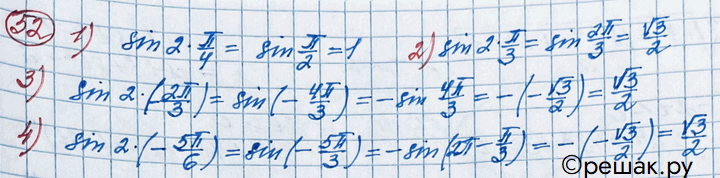 52 1) sin 2·π/4 = sin π/2 = 1 2) sin 2·π/3 = sin 2π/3 = √3/2
3) sin 2·(-2π/3) = sin(-4π/3) = -sin 4π/3 = -(-√3/2) = √3/2
4) sin 2·(-5π/6) = sin(-5π/3) = -sin(2π - π/3) = -(-√3/2) = √3/2
©решак.ру